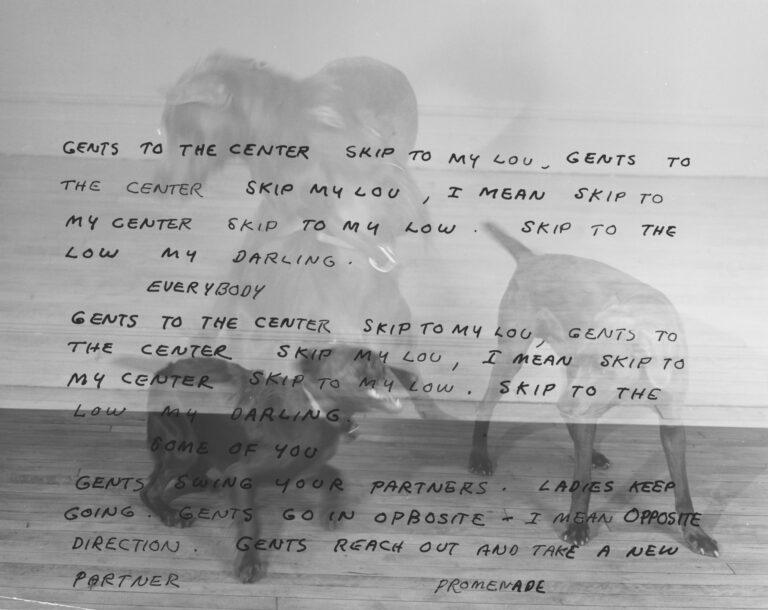 GENTS TO THE CENTER SKIP TO MY LOU, GENTS TO
THE CENTER SKIP MY LOU, I MEAN SKIP TO
MY CENTER SKIP TO MY LOW. SKIP TO THE
LOW MY DARLING.
EVERYBODY
GENTS TO THE CENTER SKIP TO MY LOU, GENTS TO
THE CENTER SKIP MY LOU, I MEAN SKIP TO
MY CENTER SKIP TO MY LOW. SKIP TO THE
LOW MY DARLING.
SOME OF YOU
GENTS SWING YOUR PARTNERS. LADIES KEEP
GOING. GENTS GO IN OPBOSITE - I MEAN OPPOSITE
DIRECTION. GENTS REACH OUT AND TAKE A NEW
PARTNER PROMENADE